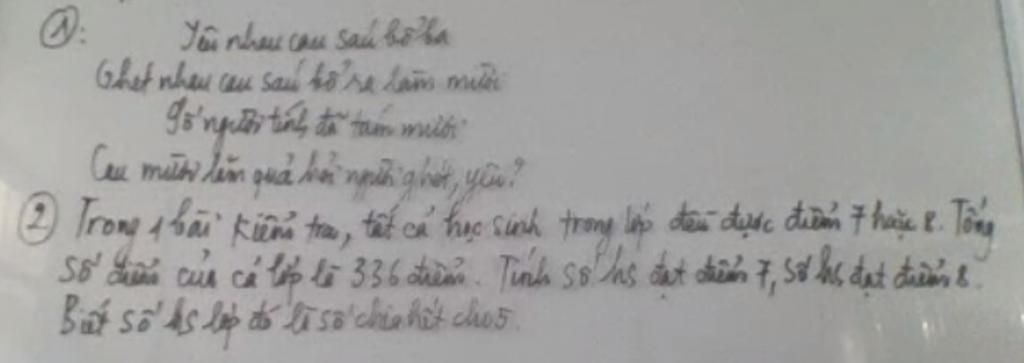 ①: Yêu nhau cau sáu bổ ba
Ghét nhau cau sáu bổ ra làm mười
Số người tính đã tám mươi
Cau mười lăm quả hỏi người ghét, yêu?
② Trong 1 bài kiểm tra, tất cả học sinh trong lớp đều được điểm 7 hoặc 8. Tổng
số điểm của cả lớp là 336 điểm. Tính số hs đạt điểm 7, số hs đạt điểm 8.
Biết số hs lớp đó là số chia hết cho 5.